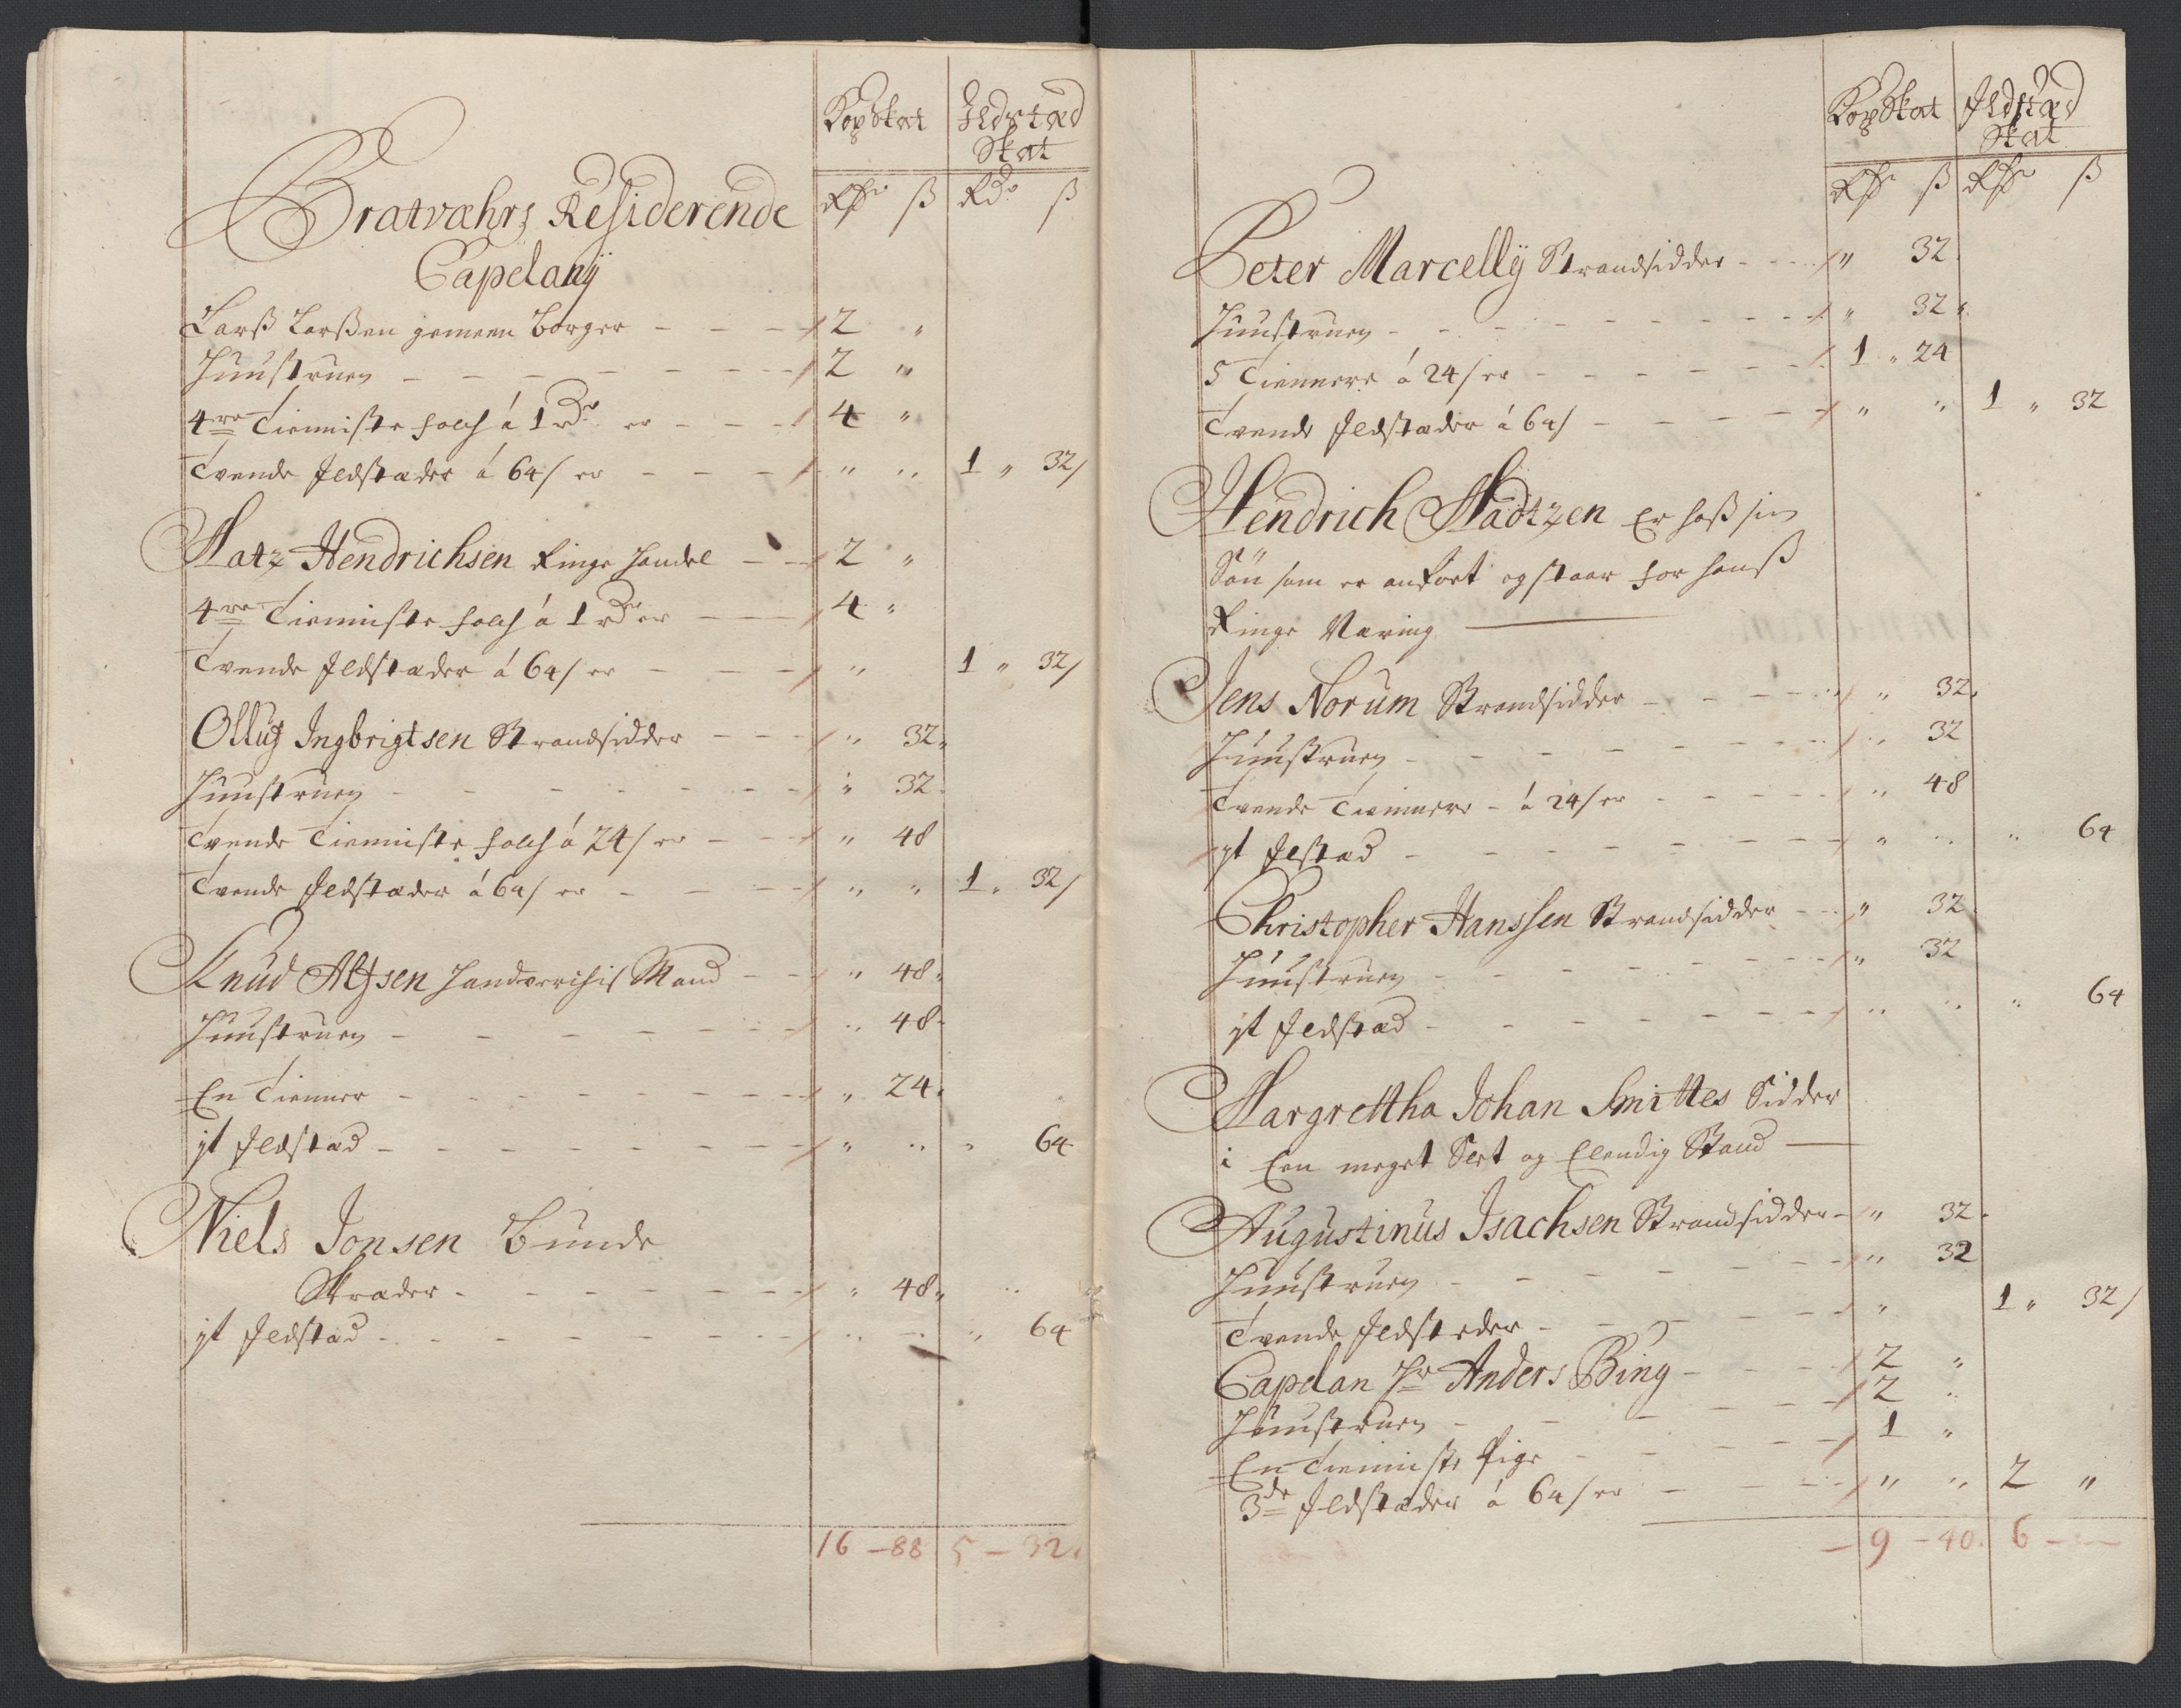 KopSkat Ildstæd
Skat
Rdr ß Rdr ß
Bratvæhrs Residerende
Capelanÿ
Larß Larßen gemeen borger - - - 2 "
Huustruen - - - - - - - 2 "
4re Tienniste folch á 1 rdr er - - - 4 "
Tvende Jldstæder á 64 s er - - - " " 1 " 32
Matz Hendrichsen Ringe Handel - - 2 "
4re Tienniste folch á 1 rdr er - - - 4 "
Tvende Jldstæder á 64 s er - - - " 1 " 32
Olluf Ingbrigtsen Strandsidder - - - " 32
Huustruen - - - - - - - " 32
Tvende Tienniste folch á 24 s er - - - " 48
Tvende Jldstæder á 64 s er - - - " " 1 " 32
Knud Alfsen Handverchs Mand - - " 48
Huustruen - - - - - - " 48
En Tienner - - - - - - - " 24
jt Jldstæd - - - - - - - " " " 64
Niels Jonsen bunde
Skræder - - - - - - " 48 "
jt Jldstæd - - - - - - - " - " 64
16 - 88 5 - 32
KopSkat Jldstæd
Skat
Rdr ß Rdr ß
Peter Marcellÿ Strandsidder - - - " 32
Huustruen - - - - - - - " 32
5 Tiennere á 24 s er - - - - - 1 " 24
Tvende Jldstæder á 64 s - - - - " " 1 " 32
Hendrich Madtzen er hoß sin
Søn som er anført og staar for hanß
Ringe Næring
Jens Norum Strandsidder - - - - " 32
Huustruen - - - - - - - " 32
Tvende Tiennere - á 24 s er - - - - " 48
jt Jlstæd - - - - - - - " " " 64
Christopher Hanssen Strandsidder - - " 32
Huustruen - - - - - - - " 32
jt Jldstæd - - - - - - - " " " 64
Margrettha Johan Smittes Sidder
i Een meget Slet og Elendig Stand
Augustinus Isachsen Strandsidder - " 32
Huustruen - - - - - - - " 32
Tvende Jldsteder - - - - - - " 1 " 32
Capelan Hr Anders Bing - - - 2 "
Huustruen - - - - - - 2 "
En Tienniste Pige - - - - - 1 "
3de Jldstæder á 64 s er - - - - " " 2 "
- 9 - 40 6 - -